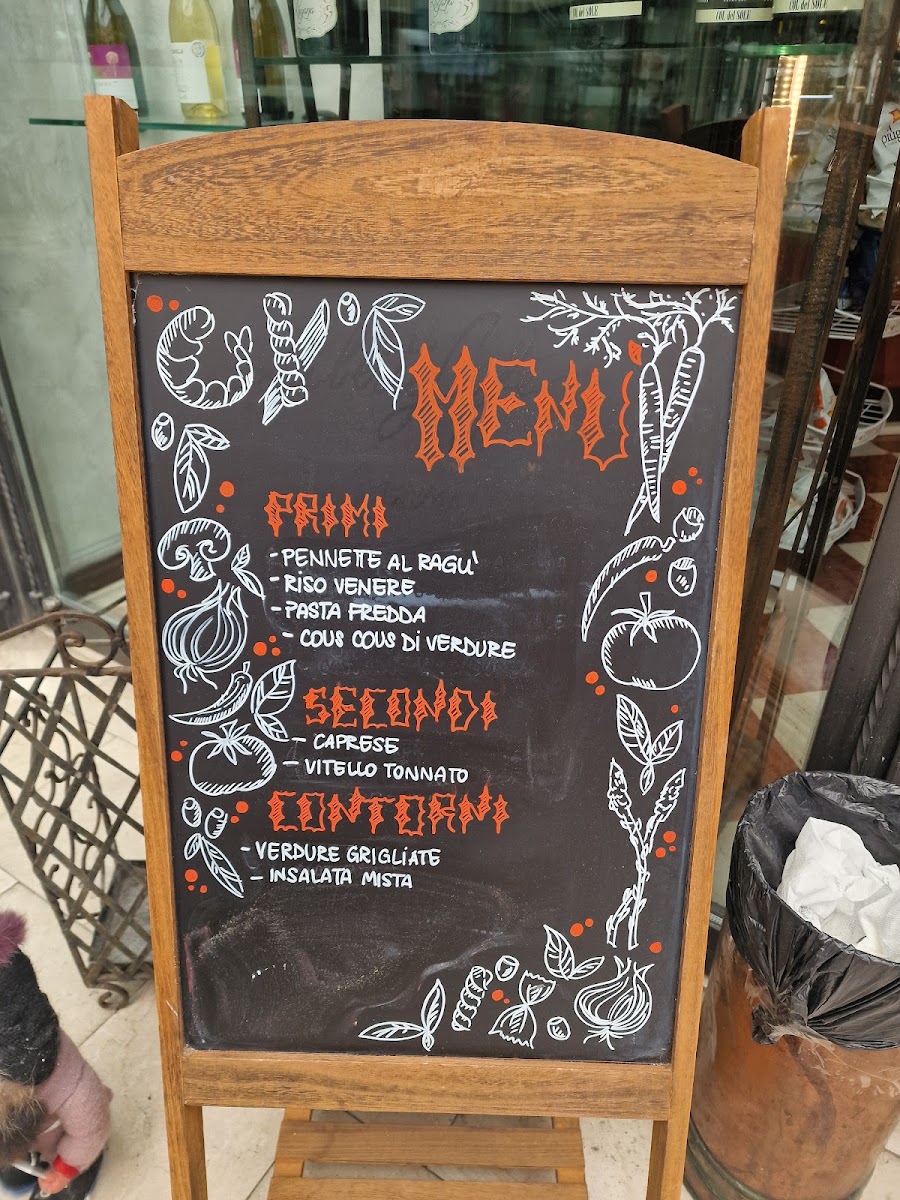 COL del SOLE
COL del SOLE
MENU
PRIMI
- PENNETTE AL RAGU'
- RISO VENERE
- PASTA FREDDA
- COUS COUS DI VERDURE
SECONDI
- CAPRESE
- VITELLO TONNATO
CONTORNI
- VERDURE GRIGLIATE
- INSALATA MISTA